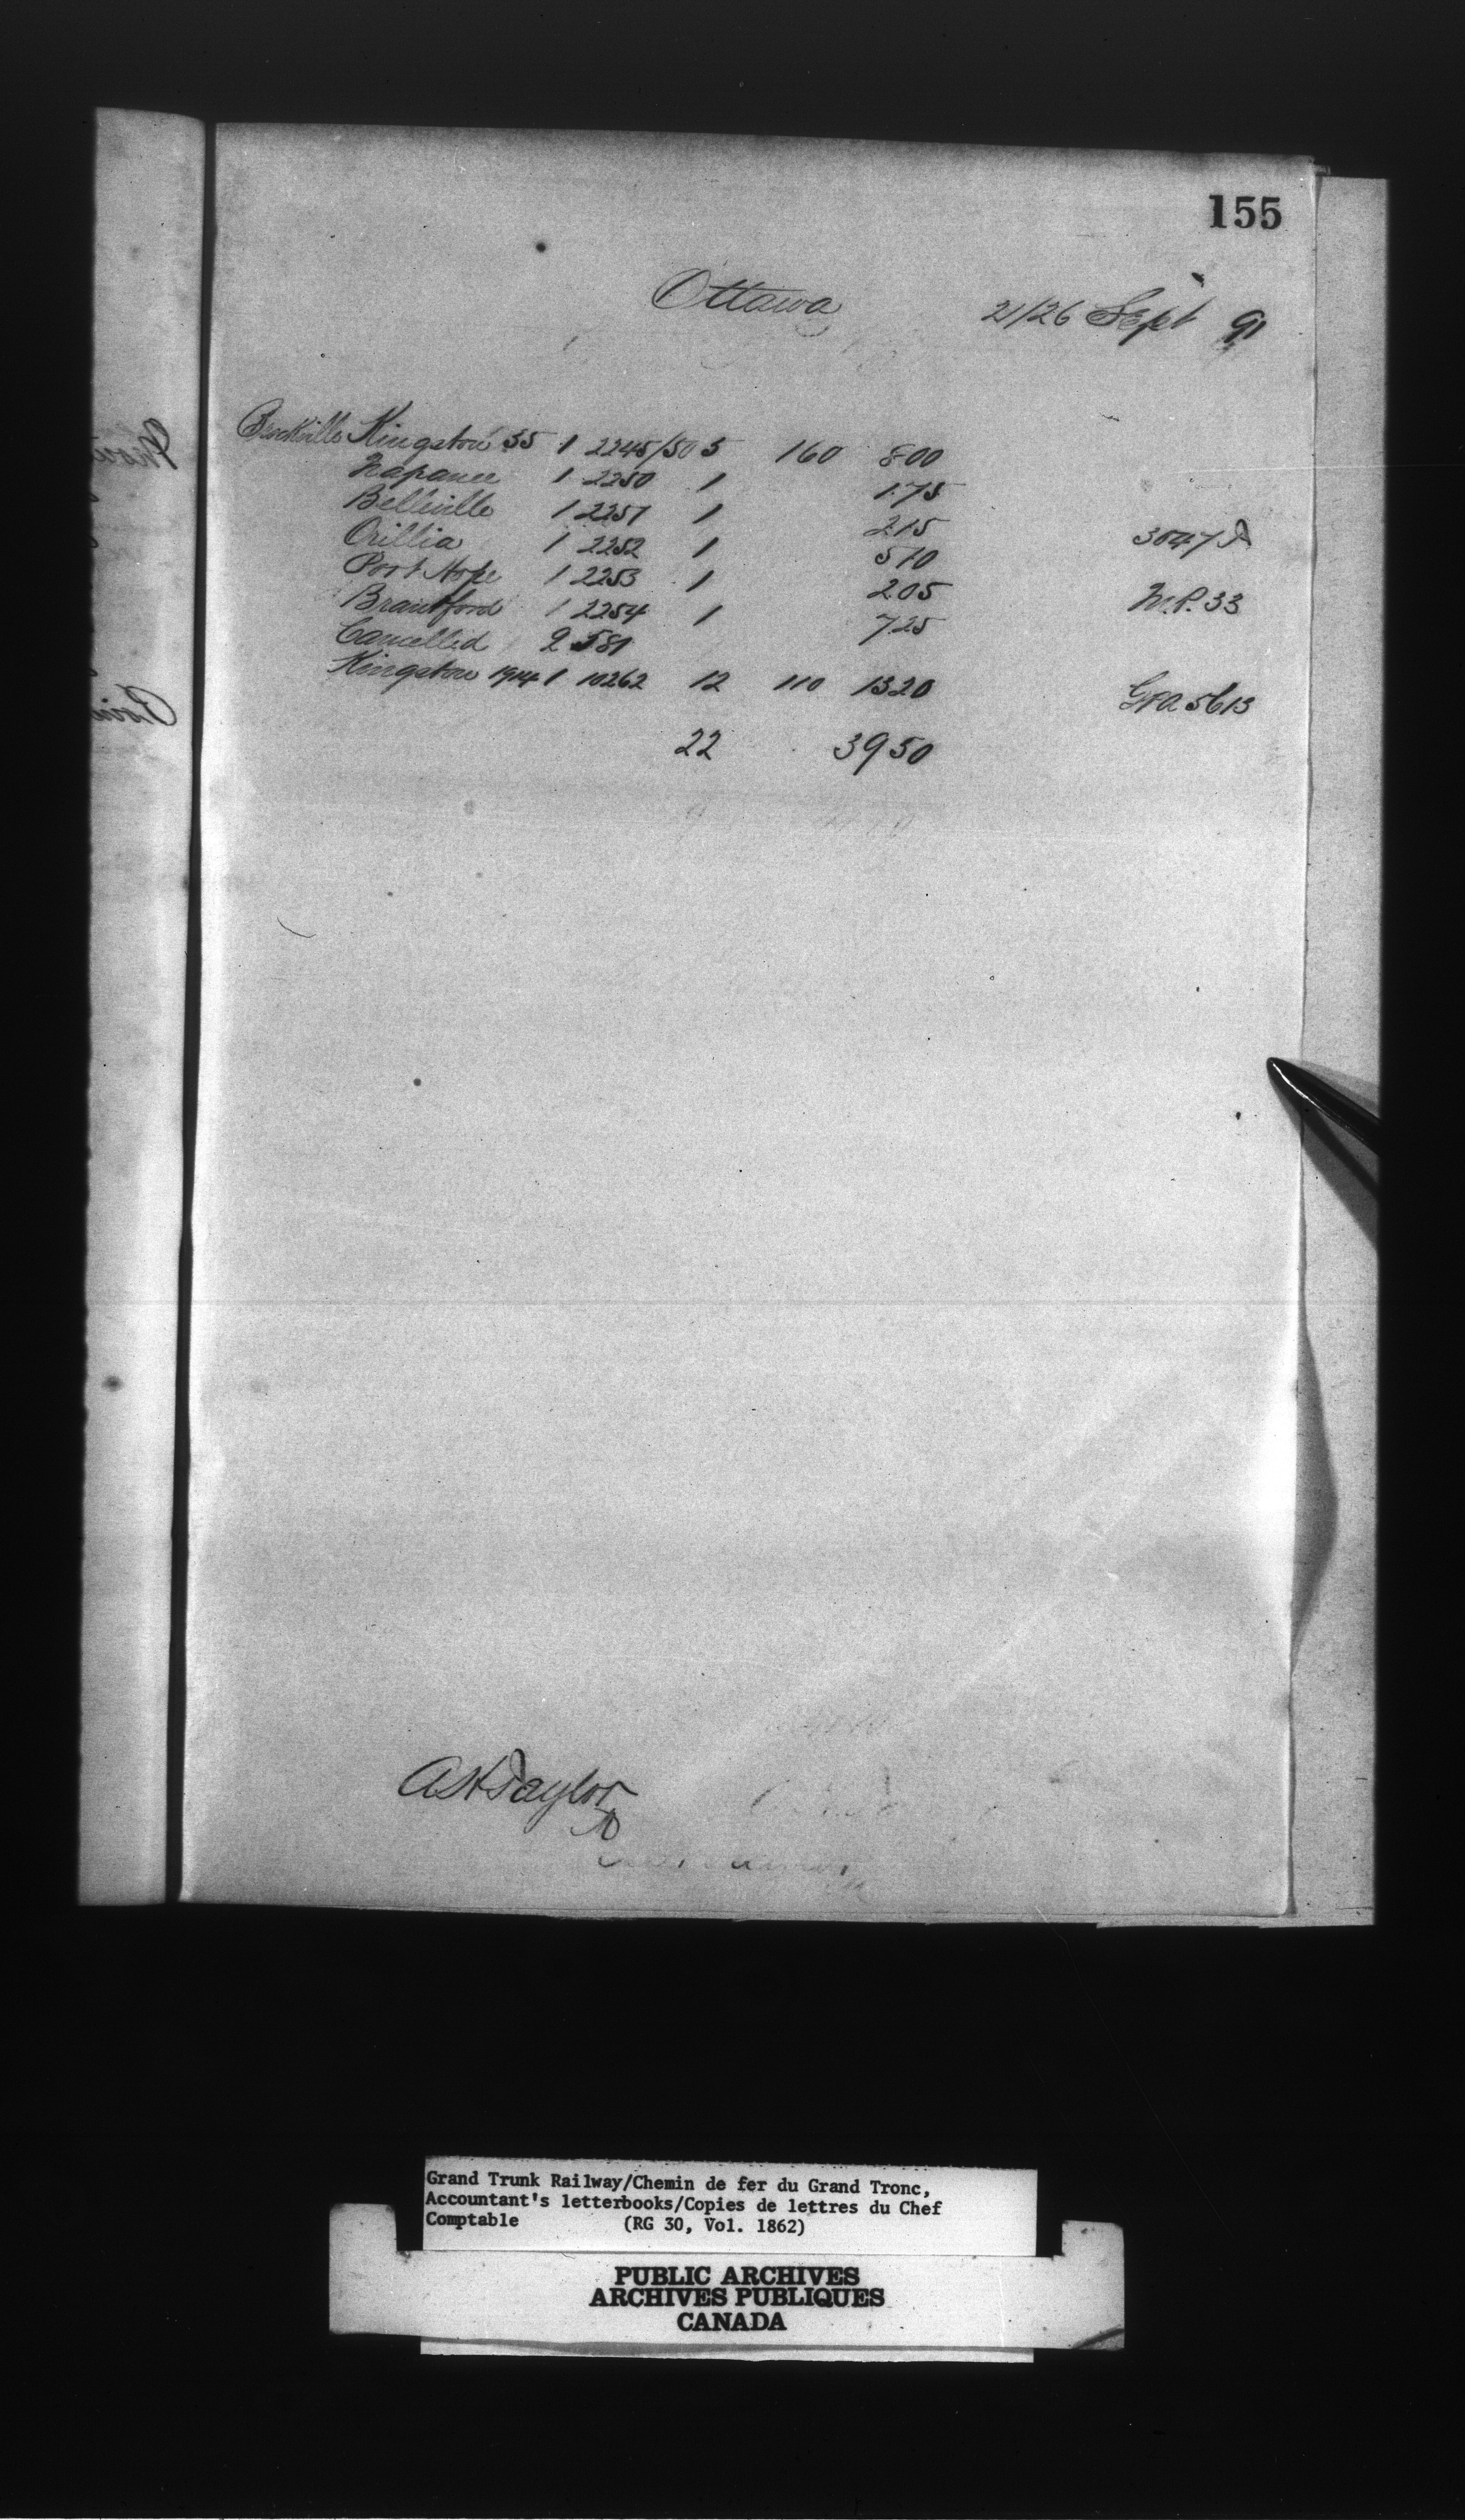 155
Ottawa 21/26 Sept 91
Brockville Kingston 35 1 2245/50 5 160 800
Napanee 1 2250 1 1.75
Belleville 1 2251 1 215
Orillia 1 2252 1 510 3047
Port Hope 1 2253 1 205
Brantford 1 2254 1 725 M.P. 33
Cancelled 2 581
Kingston 1914 1 10262 12 110 1320
GFA 5613
22 3950
AH Taylor
Grand Trunk Railway/Chemin de fer du Grand Tronc,
Accountant's letterbooks/Copies de lettres du Chef
Comptable (RG 30, Vol. 1862)
PUBLIC ARCHIVES
ARCHIVES PUBLIQUES
CANADA